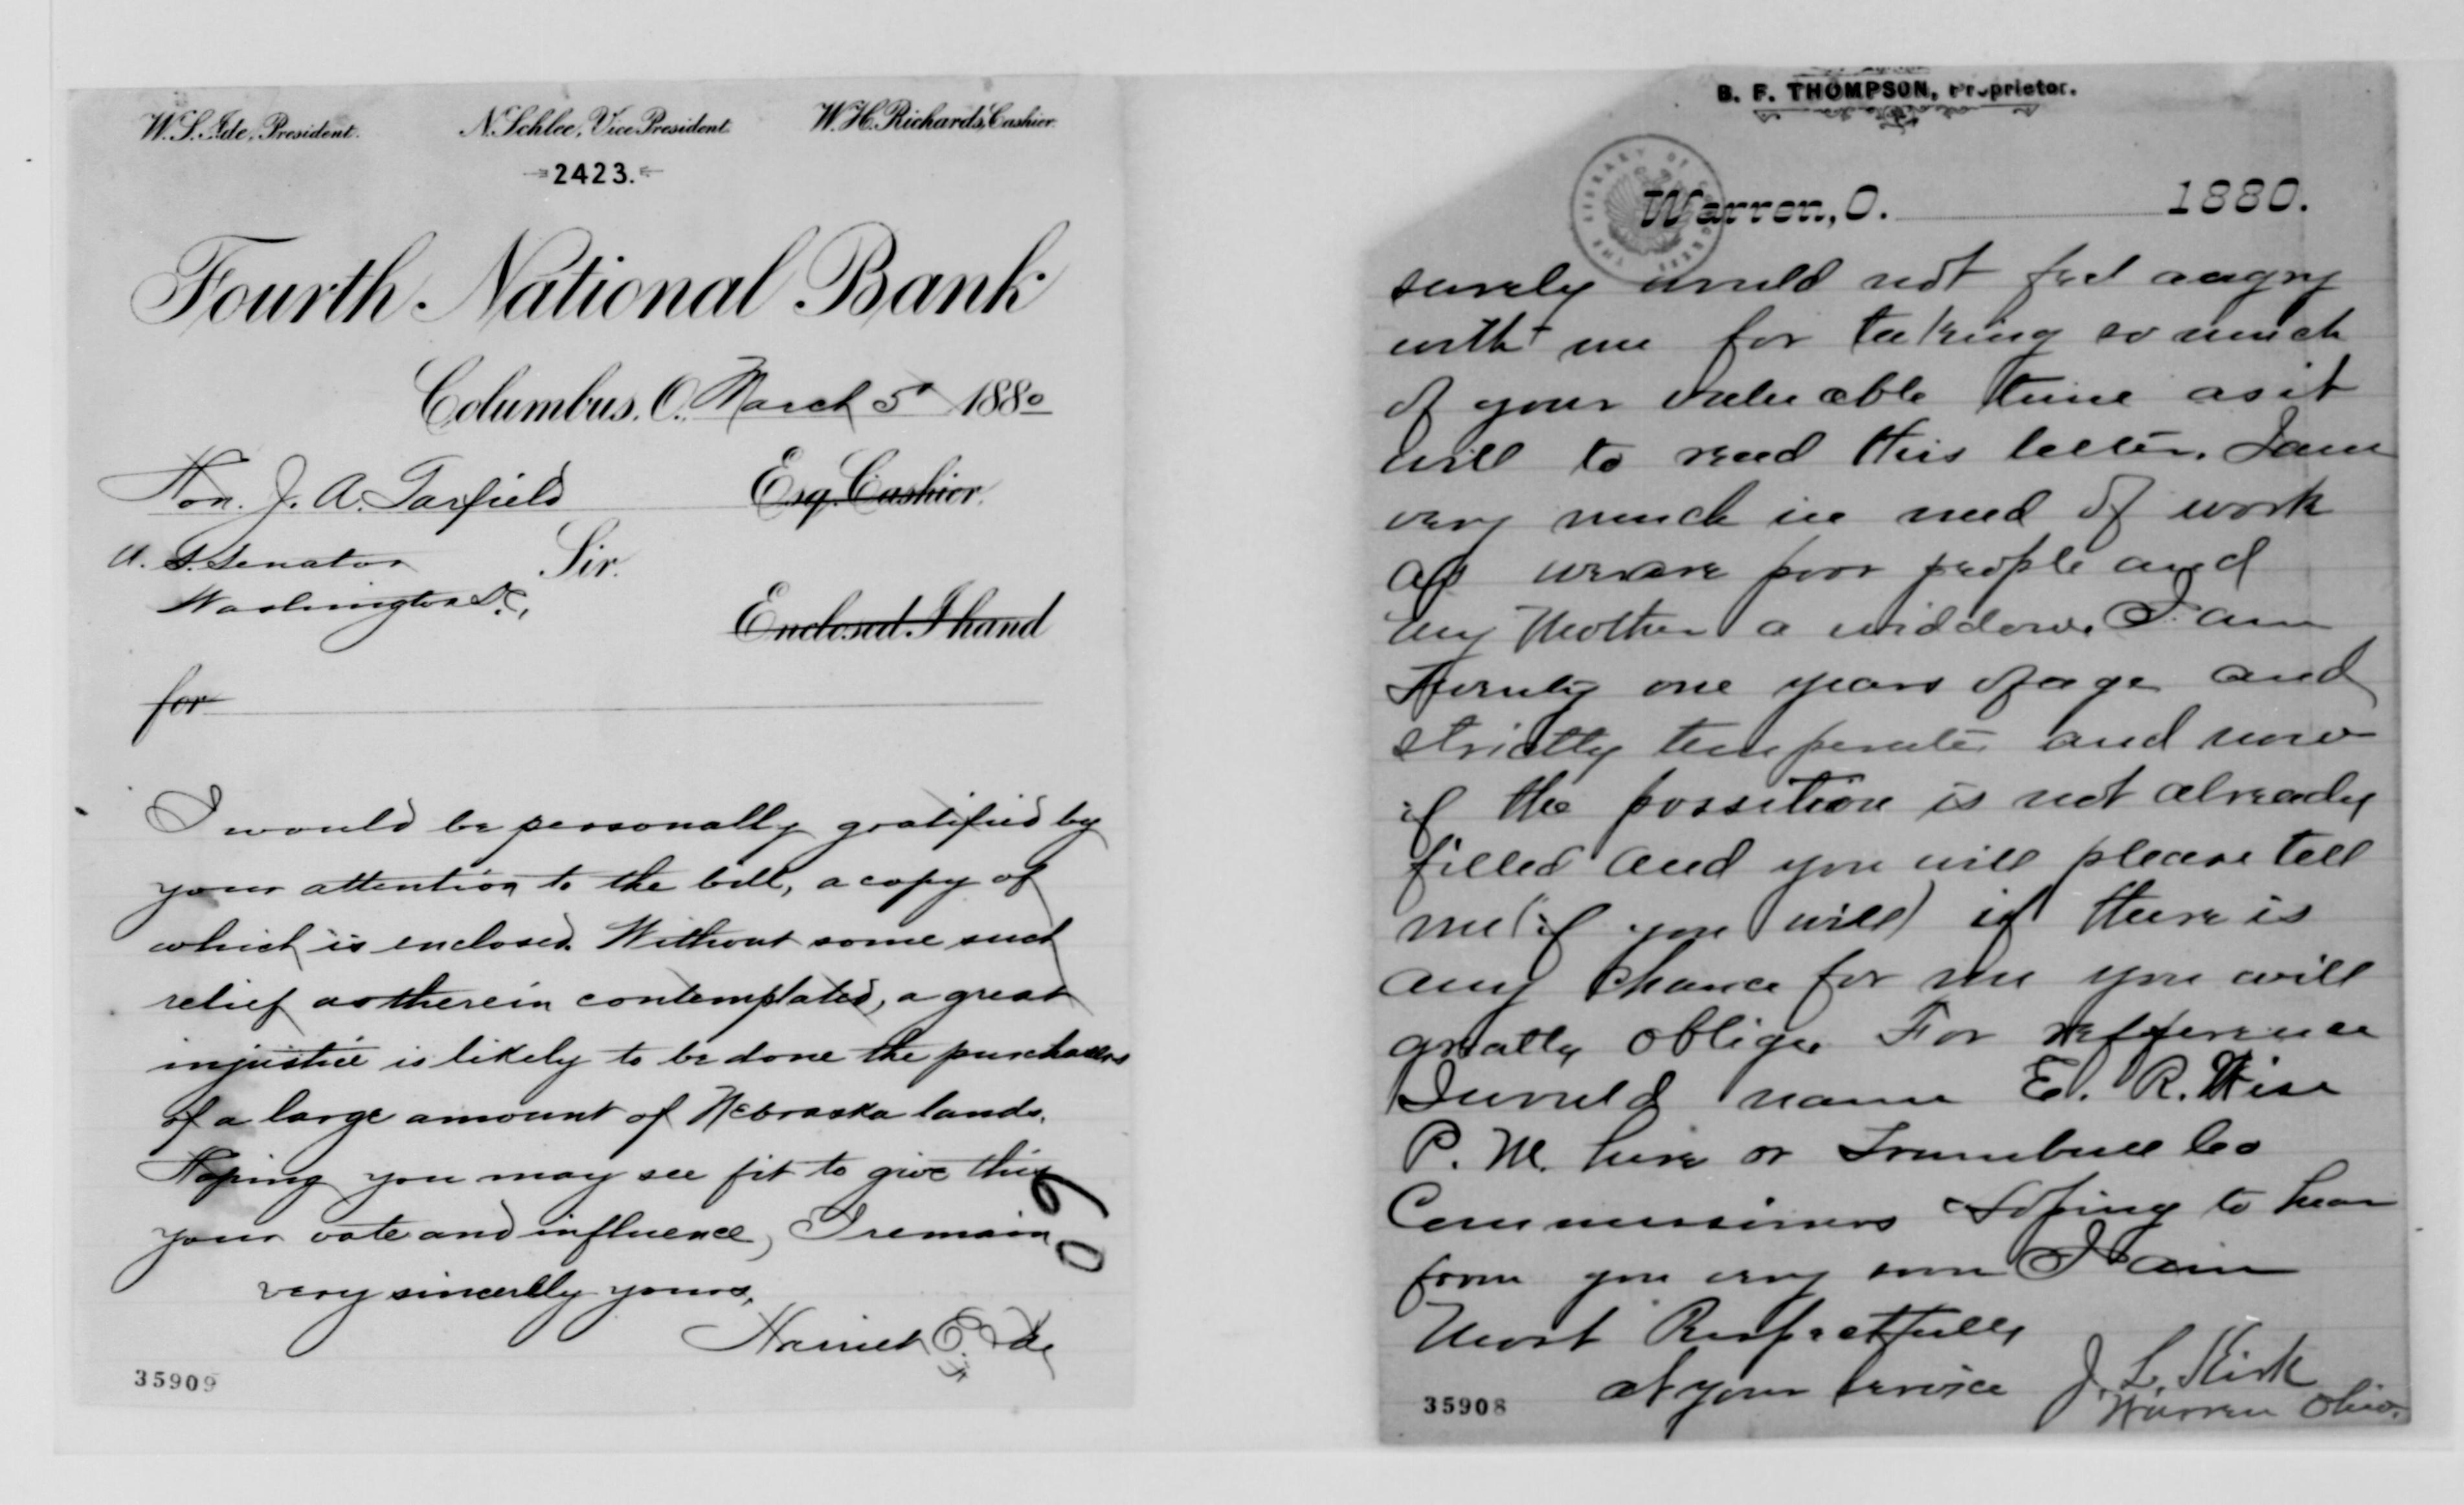 W. S. Ide, President. N. Schlee, Vice President. W. H. Richards, Cashier.
2423.
Fourth National Bank
Columbus, O. March 5" 1880
Hon. J. A. Garfield Esq. Cashier.
U. S. Senator Sir.
Washington D.C.,
Enclosed I hand
for
I would be personally gratified by
your attention to the bill, a copy of
which is enclosed. Without some such
relief as therein contemplated, a great
injustice is likely to be done the purchasers
of a large amount of Nebraska lands.
Hoping you may see fit to give this
your vote and influence, I remain
very sincerely yours,
60
35909
B. F. THOMPSON, Proprietor.
THE LIBRARY OF CONGRESS
Warren, O. 1880.
surely would not feel angry
with me for taking so much
of your valuable time as it
will to read this letter. I am
very much in need of work
as we are poor people and
my Mother a widdow. I am
Twenty one years of age and
strictly temperate and now
if the possition is not already
filled and you will please tell
me (if you will) if there is
any chance for me you will
greatly oblige. For refference
I would name E. R. Wise
P. M. here or Trumbull Co
Commissioners Hoping to hear
from you very soon I am
Most Respectfully
at your service J. L. Kirk
Warren Ohio.
35908